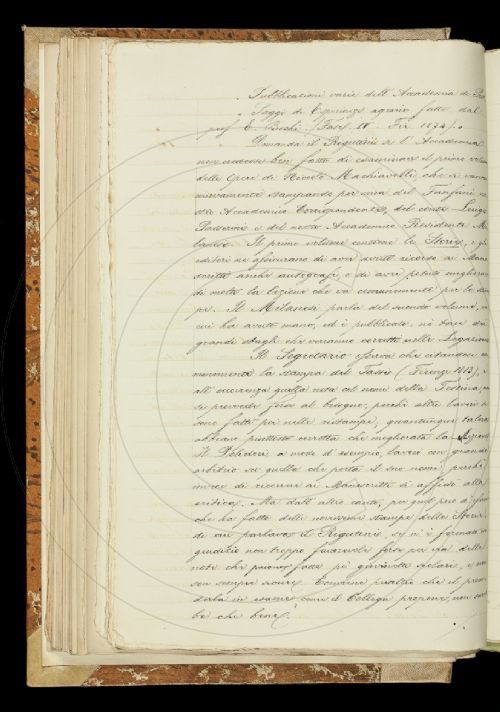 Pubblicazioni varie dell'Accademia di
Saggi di Esperienze agrarie fatte dal
prof. E. Fasc. IV. Fir. 1874).
Domanda il Rigutini se l'Accademia
non creda ben fatto di esaminare il primo volume
delle Opere di Niccolò Machiavelli, che si vanno
nuovamente stampando per cura del Fanfani no
stro Accademico Corrispondente, del conte Luigi
Passerini e del nostro Accademico Residente Mi
lanesi. Il primo volume contiene le Storie, e gli
editori ne assicurano di aver avuto ricorso ai Mano
scritti anche autografi, e di aver potuto migliorare
di molto la lezione che va comunemente per le stam
pe. Il Milanesi parla del secondo volume, in
cui ha avuto mano, ed è pubblicato, nè tace dei
grandi sbagli che verranno corretti nelle Legazioni.
Il Segretario osserva che citandosi co
munemente la stampa del Tassi (Firenze 1813), e
all'occorrenza quella nota col nome della Testina,
si provvede già al bisogno; perchè altri lavori si
sono fatti poi nelle ristampe, quantunque talora
abbiano piuttosto corrotta che migliorata la
Il Polidori a modo di esempio, lavorò con grande
arbitrio su quella che porta il suo nome, perchè
invece di ricorrere ai Manoscritti si affidò alla
critica. Ma dall'altro canto, per quel poco di
che ha fatto delle novissime stampe delle Storie,
di cui parlava il Rigutini, si n'è formato un
giudizio non troppo favorevole forse per via delle
note che paiono fatte pe' giovinetti scolari, e non
son sempre sicure. Conviene peraltro che il pren
derla in esame come il Collega propone, non sareb
be che bene.